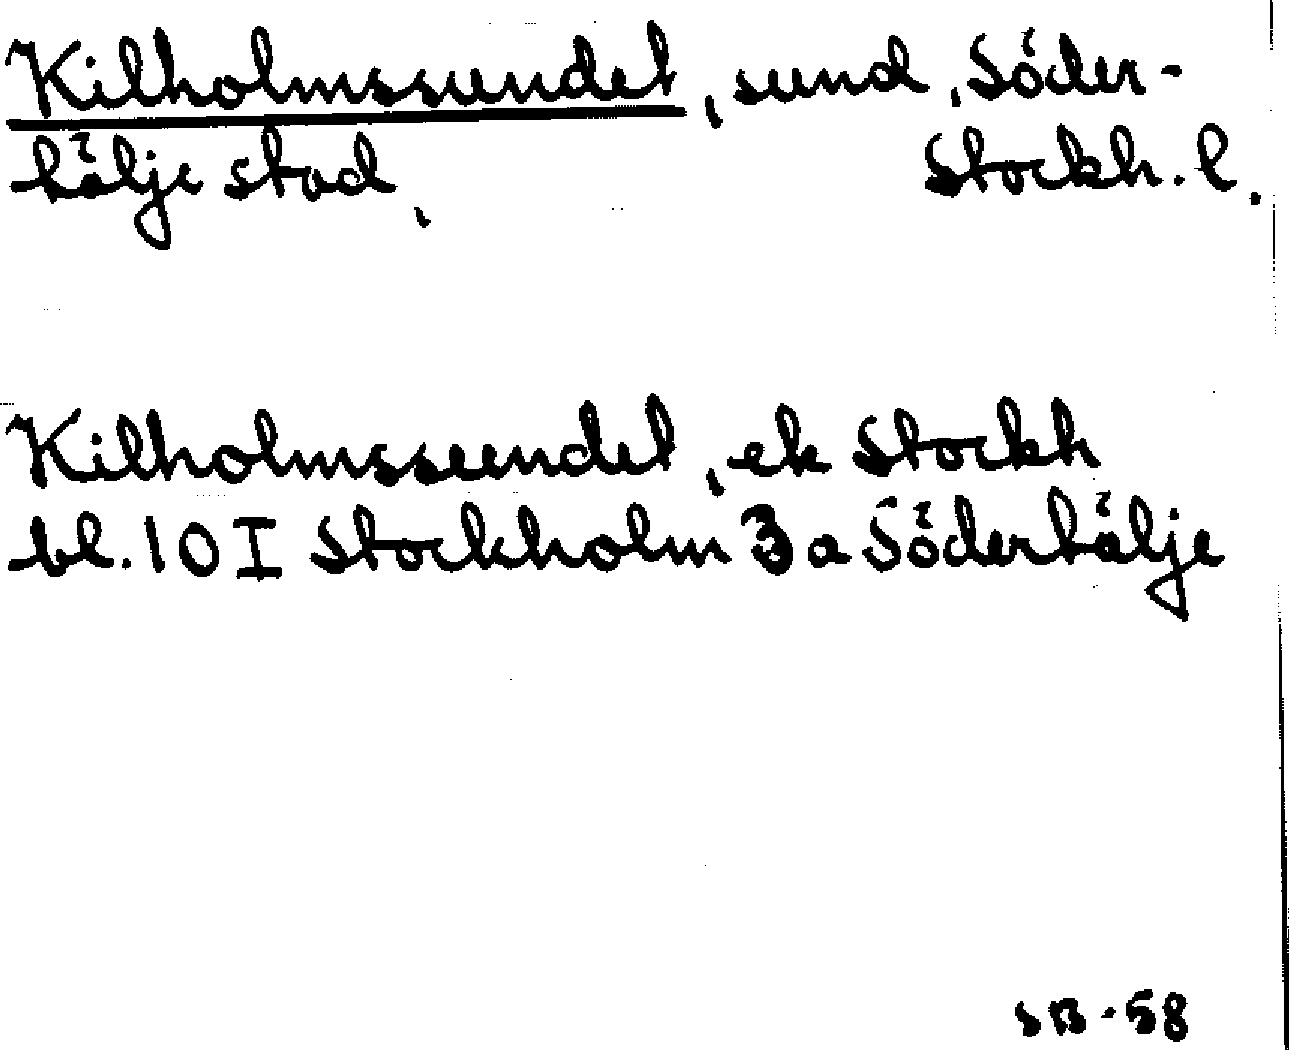 Kilholmssundet, sund, Söder-
tälje stad, Stockh. l.
Kilholmssundet, ek Stockh
bl. 10 I Stockholm 3 a Södertälje
SB - 58